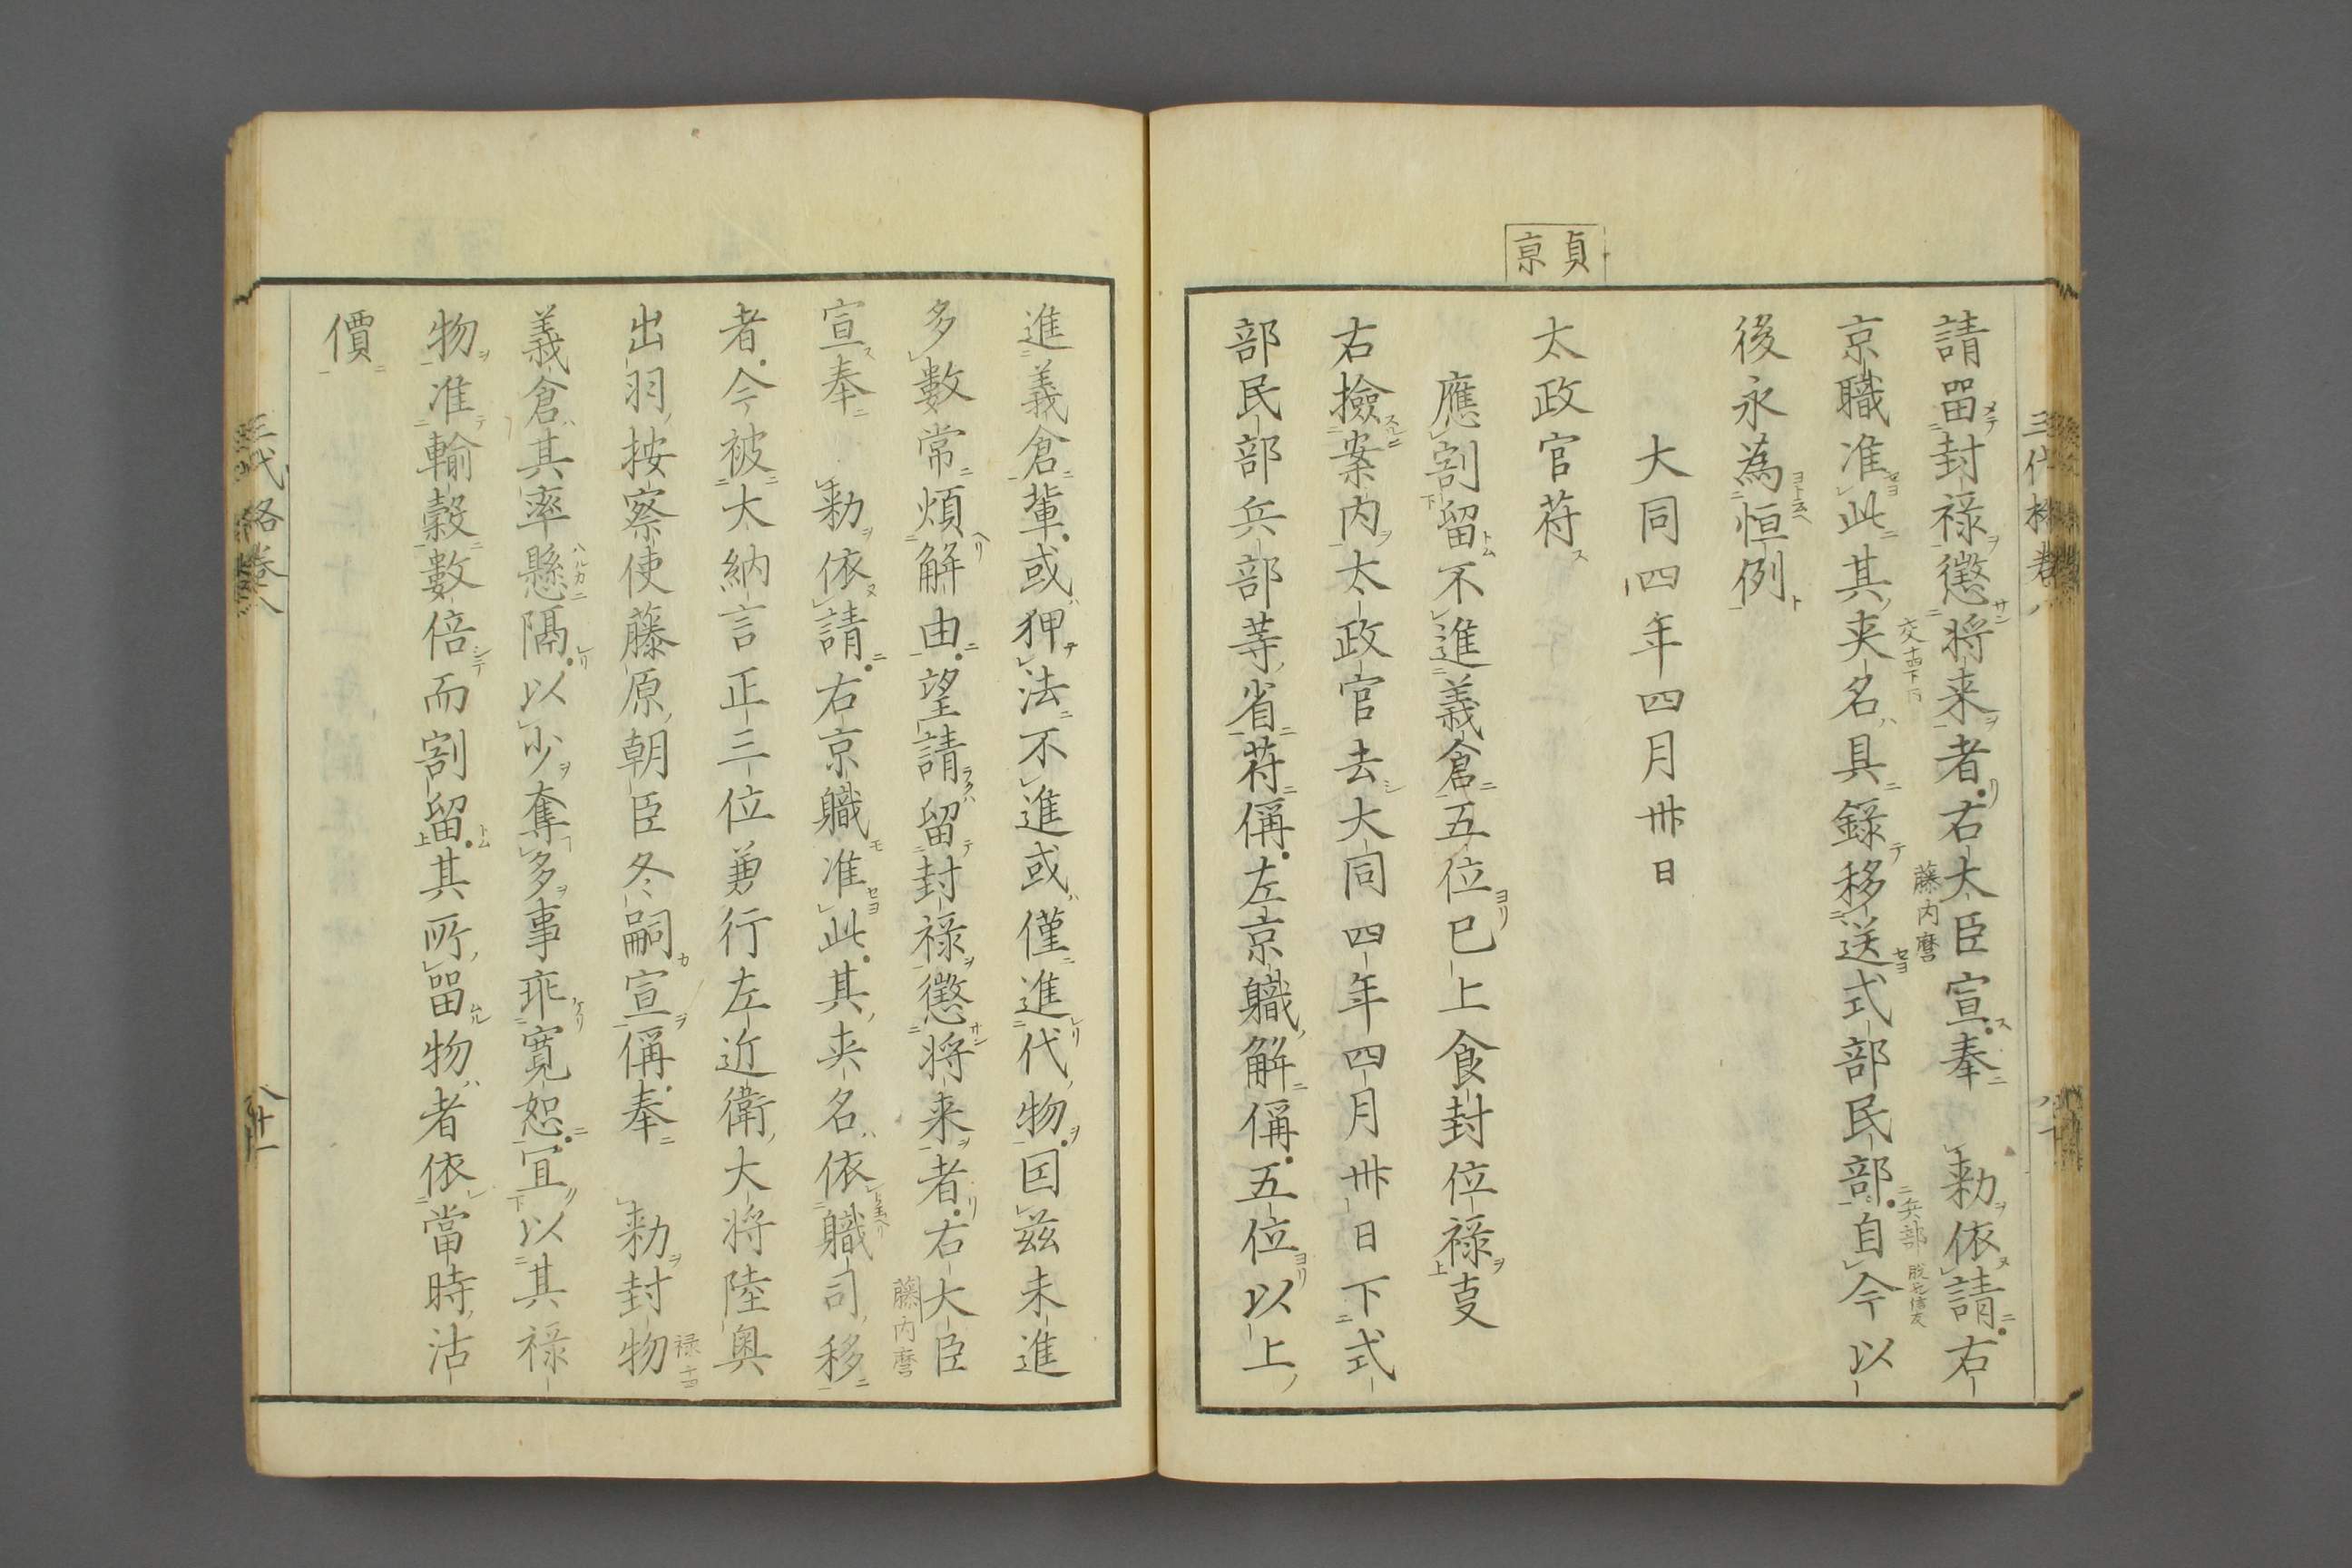 貞京
請畱封禄懲将来者右大臣宣奉　勅依請右
藤内麿
京職准此其夾名具錄移送式部民部自今以
後永為恒例
大同四年四月卅日
太政官苻
應割留不進義倉五位已上食封位禄事
右撿案内太政官去大同四年四月卅日下式
部民部兵部等省苻偁左京職解偁五位以上
進義倉輩或狎法不進或僅進代物因兹未進
多數常煩解由望請留封禄懲将来者右大臣
藤内麿
宣奉　勅依請右京職准此其夾名依職司移
者今被大納言正三位兼行左近衛大将陸奥
出羽按察使藤原朝臣冬嗣宣偁奉　勅封物
義倉其率懸隔以少奪多事乖寛恕宜以其禄
物准輸穀數倍而割留其所畱物者依當時沽
價
三代格卷八